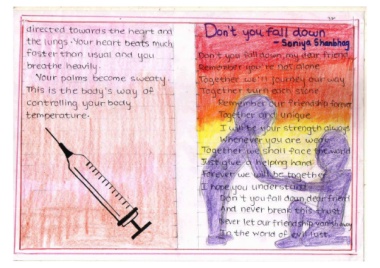 directed towards the heart and
the lungs. Your heart beats much
faster than usual and you
breathe heavily.
Your palms become sweaty.
This is the body's way of
controlling your body
temperature.
Don't you fall down
- Saniya Shanbhag
Don't you fall down, my dear friend
Remember you're not alone
Together we'll journey our way
Together turn each stone
Remember our friendship forever
Together are unique
I will be your strength always
Whenever you are weak
Together we shall face the world
Just give a helping hand
Forever we will be together
I hope you understand
Don't you fall down dear friend
And never break this trust
Never let our friendship
In the world of evil lust.